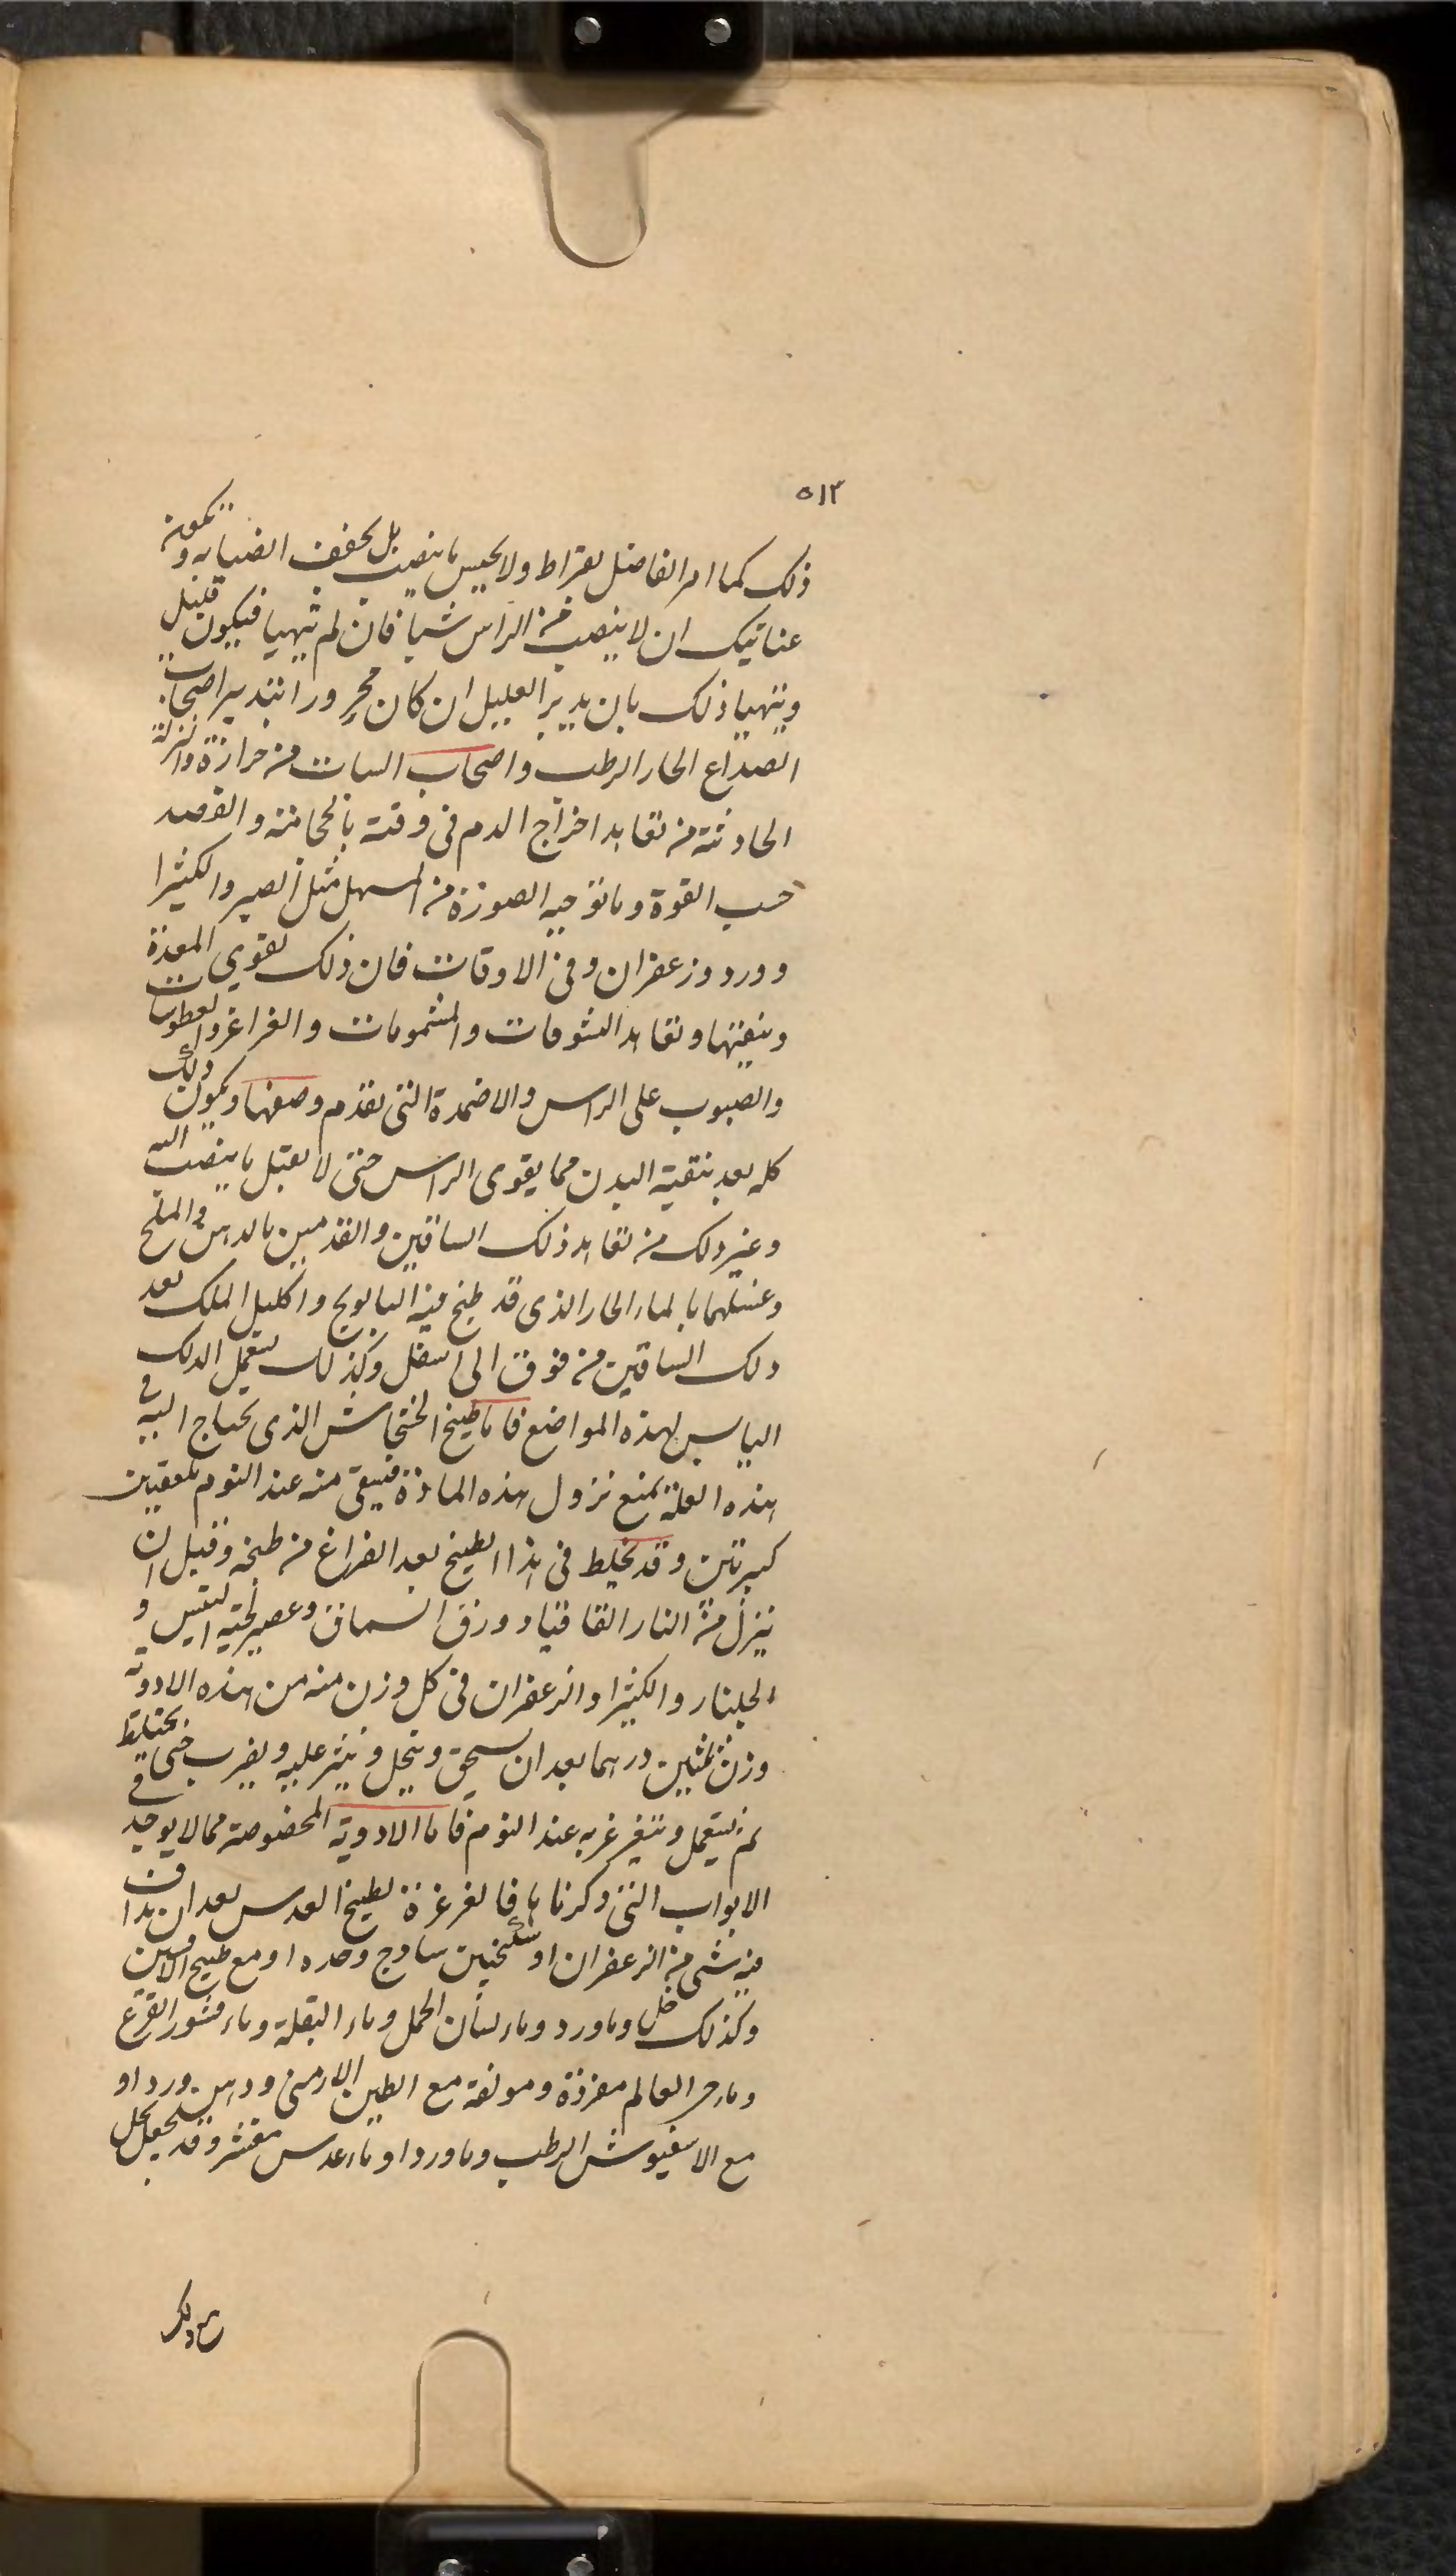 ٥١٢
ذلك كما امر الفاضل بقراط ولا يحبس ما ينصب بل يجفف انصبابه ويكون
عنايتك ان لا ينصب من الراس شيا فان لم يتهيا فيكون قليل
ويتهيا ذلك بان يدبر العليل ان كان محرورا بتدبير اصحاب
الصداع الحار الرطب واصحاب السبات من حرارة والنزلة
الحادثة من تعاهد اخراج الدم فى وقته بالحجامة والفصد
حسب القوة وما توجبه الصورة من المسهل مثل الصبر والكثيرا
وورد وزعفران وفى الاوقات فان ذلك يقوى المعدة
وينقيها وتعاهد النشوقات والمشمومات والغراغر والعطوسات
والصبوب على الراس والاضمدة التى تقدم وصفها ويكون ذلك
كله بعد تنقية البدن مما يقوى الراس حتى لا يقبل ما ينصب اليه
وغير ذلك من تعاهد دلك الساقين والقدمين بالدهن والملح
وغسلهما بالماء الحار الذى قد طبخ فيه البابونج واكليل الملك بعد
دلك الساقين من فوق الى اسفل وكذلك يستعمل الدلك
اليابس لهذه المواضع فاما طبيخ الخشخاش الذى يحتاج اليه فى
هذه العلة يمنع نزول هذه المادة فيسقى منه عند النوم ملعقتين
كبيرتين وقد يخلط فى هذا الطبيخ بعد الفراغ من طبخه وقبل ان
ينزل من النار القاقيا وورق السماق وعصير لحية التيس و
الجلنار والكثيرا والزعفران فى كل وزن منه من هذه الادوية
وزن ثمثين درهما بعد ان يسحق وينخل وينثر عليه ويضرب حتى يختلط
ثم يستعمل ويتغرغر به عند النوم فاما الادوية المخصوصة مما لا يوجد فى
الابواب التى ذكرناها فالغرغرة بطبيخ العدس بعد ان يداف
فيه شى من الزعفران او سكنجبين ساذج وحده او مع طبيخ
وكذلك خل وماورد وماء لسان الحمل وماء البقلة وماء قشور القرع
وماء حى العالم مفردة ومولفة مع الطين الارمنى ودهن ورد او
مع الاسفيوش الرطب وماورد او ماء عدس مقشر وقد يجعل بخل
مع ذلك